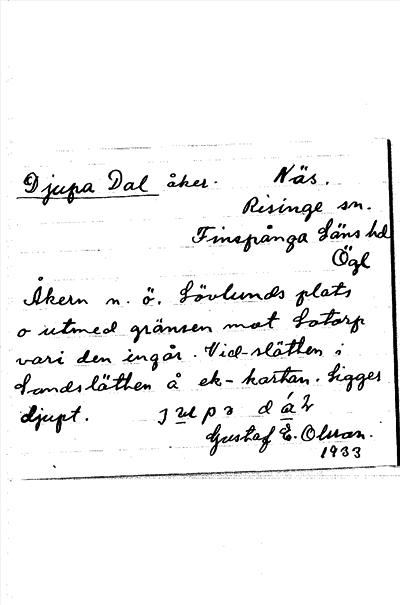 Djupa Dal åker. Näs.
Risinge sn.
Finspånga Läns hd
Ögl
Åkern n. ö. Lövlunds plats
o utmed gränsen mot Lotorp
vari den ingår. Vid-slätten i
Landslätten å ek-kartan. Ligger
djupt.
Gustaf E. Olsson.
1933